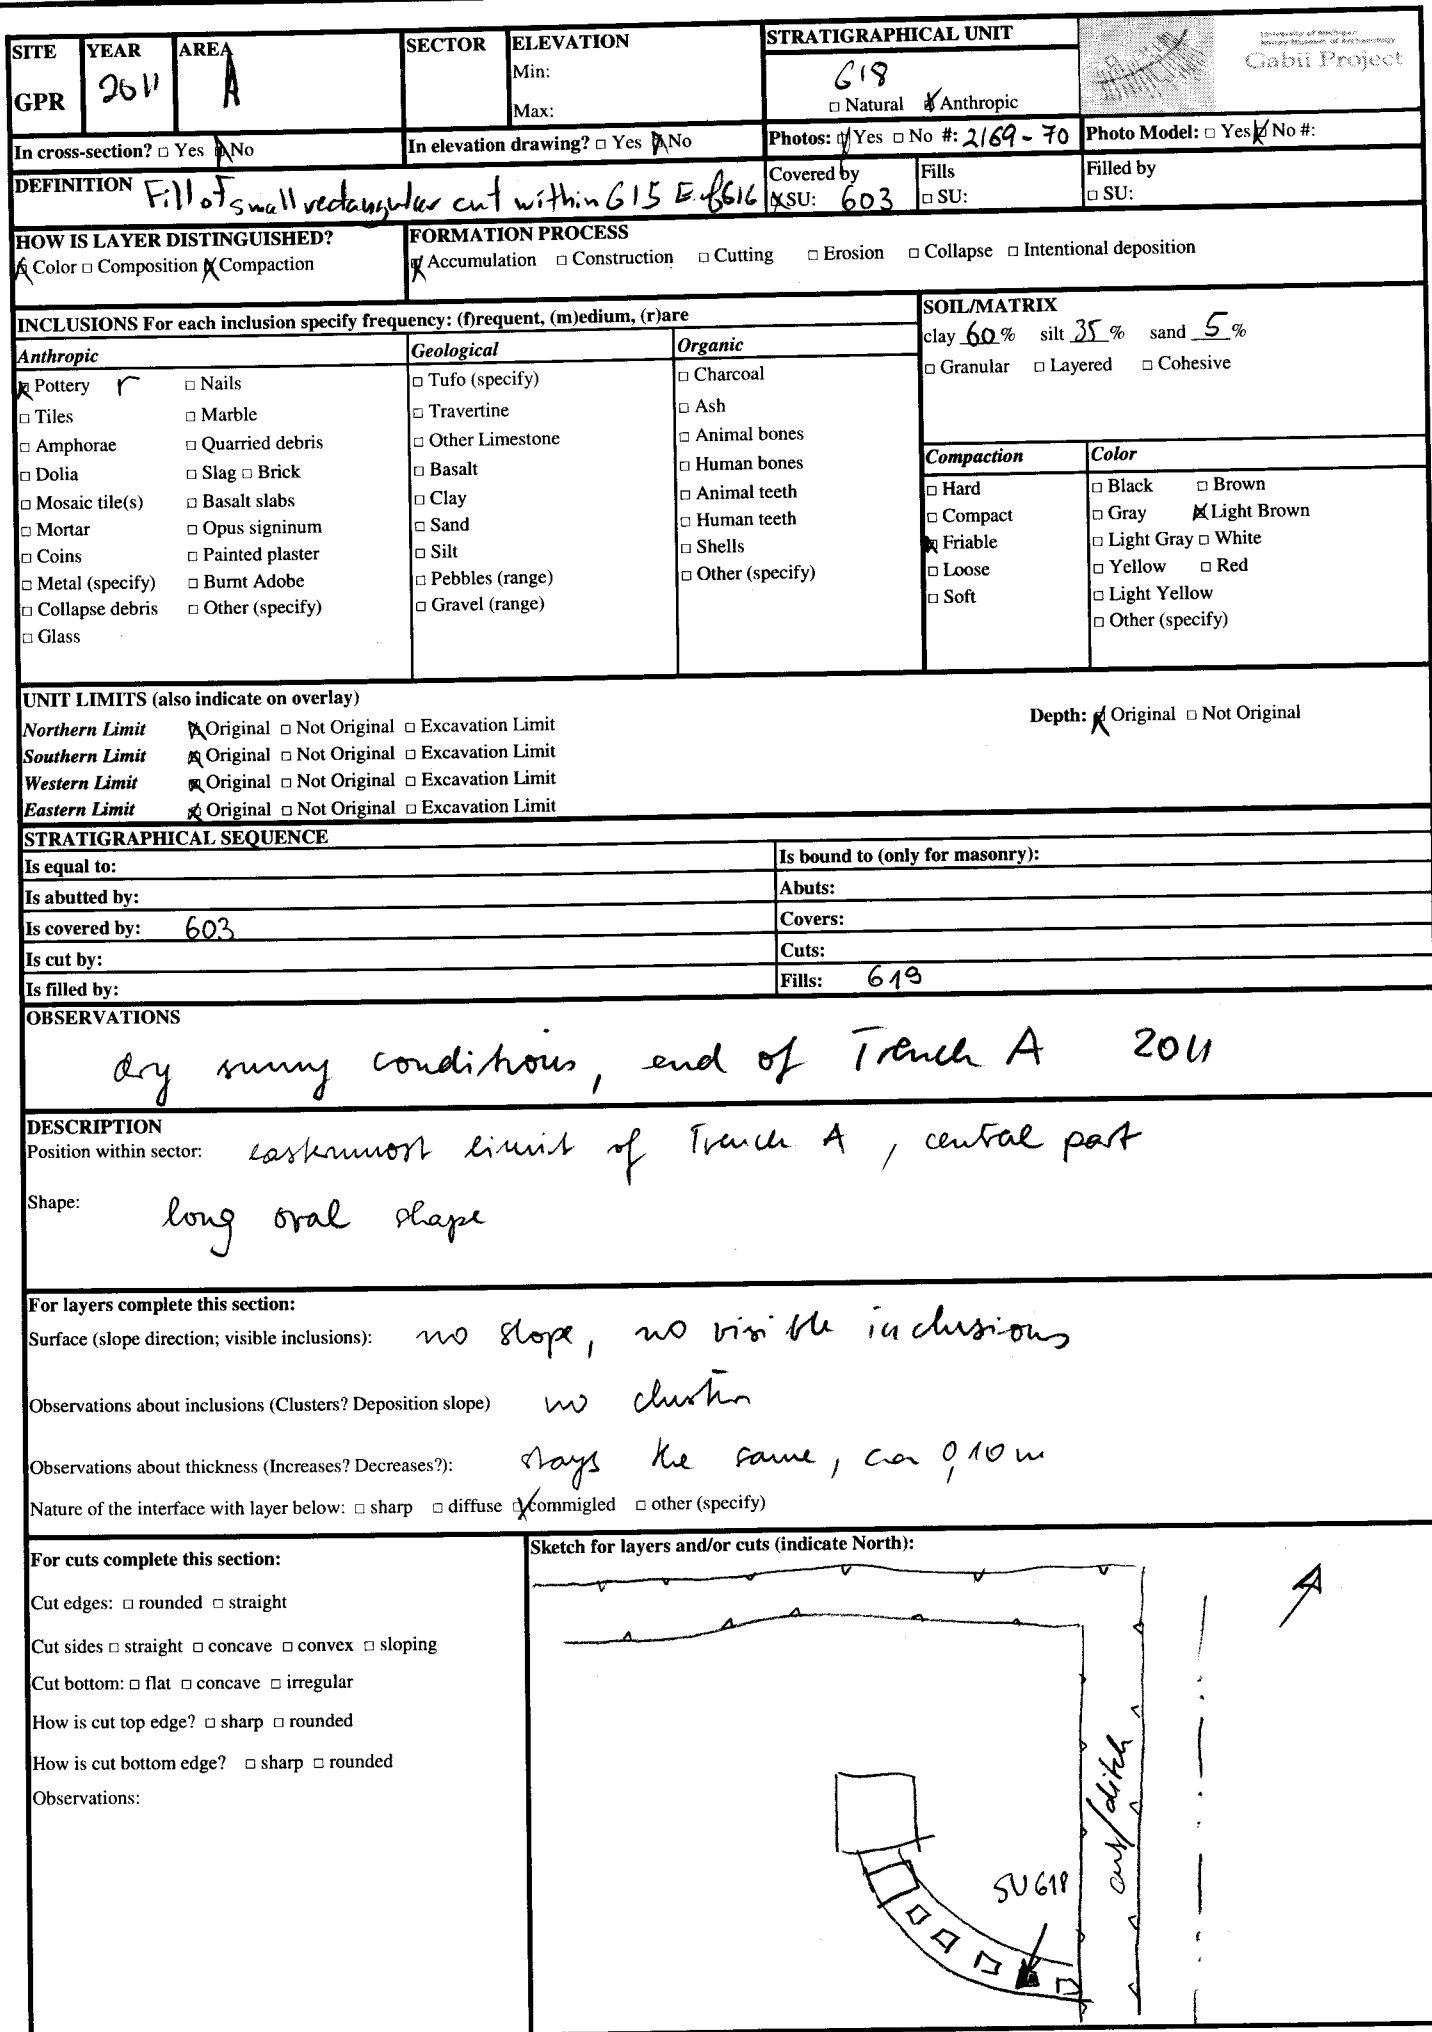 SITE YEAR AREA SECTOR ELEVATION STRATIGRAPHICAL UNIT
GPR 2011 A Min: 618
Max: □ Natural ☒ Anthropic
University of Michigan
Kelsey Museum of Archaeology
Gabii Project
In cross-section? □ Yes ☒ No In elevation drawing? □ Yes ☒ No Photos: ☒ Yes □ No #: 2169-70 Photo Model: □ Yes ☒ No #:
DEFINITION Fill of small rectangular cut within 615 E. of 616 Covered by ☒ SU: 603 Fills □ SU: Filled by □ SU:
HOW IS LAYER DISTINGUISHED?
☒ Color □ Composition ☒ Compaction
FORMATION PROCESS
☒ Accumulation □ Construction □ Cutting □ Erosion □ Collapse □ Intentional deposition
INCLUSIONS For each inclusion specify frequency: (f)requent, (m)edium, (r)are
Anthropic
☒ Pottery r □ Nails
□ Tiles □ Marble
□ Amphorae □ Quarried debris
□ Dolia □ Slag □ Brick
□ Mosaic tile(s) □ Basalt slabs
□ Mortar □ Opus signinum
□ Coins □ Painted plaster
□ Metal (specify) □ Burnt Adobe
□ Collapse debris □ Other (specify)
□ Glass
Geological
□ Tufo (specify)
□ Travertine
□ Other Limestone
□ Basalt
□ Clay
□ Sand
□ Silt
□ Pebbles (range)
□ Gravel (range)
Organic
□ Charcoal
□ Ash
□ Animal bones
□ Human bones
□ Animal teeth
□ Human teeth
□ Shells
□ Other (specify)
SOIL/MATRIX
clay 60 % silt 35 % sand 5 %
□ Granular □ Layered □ Cohesive
Compaction
□ Hard
□ Compact
☒ Friable
□ Loose
□ Soft
Color
□ Black □ Brown
□ Gray ☒ Light Brown
□ Light Gray □ White
□ Yellow □ Red
□ Light Yellow
□ Other (specify)
UNIT LIMITS (also indicate on overlay)
Northern Limit ☒ Original □ Not Original □ Excavation Limit Depth: ☒ Original □ Not Original
Southern Limit ☒ Original □ Not Original □ Excavation Limit
Western Limit ☒ Original □ Not Original □ Excavation Limit
Eastern Limit ☒ Original □ Not Original □ Excavation Limit
STRATIGRAPHICAL SEQUENCE
Is equal to: Is bound to (only for masonry):
Is abutted by: Abuts:
Is covered by: 603 Covers:
Is cut by: Cuts:
Is filled by: Fills: 619
OBSERVATIONS
dry sunny conditions, end of Trench A 2011
DESCRIPTION
Position within sector: easternmost limit of Trench A, central part
Shape: long oval shape
For layers complete this section:
Surface (slope direction; visible inclusions): no slope, no visible inclusions
Observations about inclusions (Clusters? Deposition slope) no clusters
Observations about thickness (Increases? Decreases?): stays the same, ca 0,10 m
Nature of the interface with layer below: □ sharp □ diffuse ☒ commigled □ other (specify)
For cuts complete this section:
Cut edges: □ rounded □ straight
Cut sides □ straight □ concave □ convex □ sloping
Cut bottom: □ flat □ concave □ irregular
How is cut top edge? □ sharp □ rounded
How is cut bottom edge? □ sharp □ rounded
Observations:
Sketch for layers and/or cuts (indicate North):
cut/ditch
SU 618